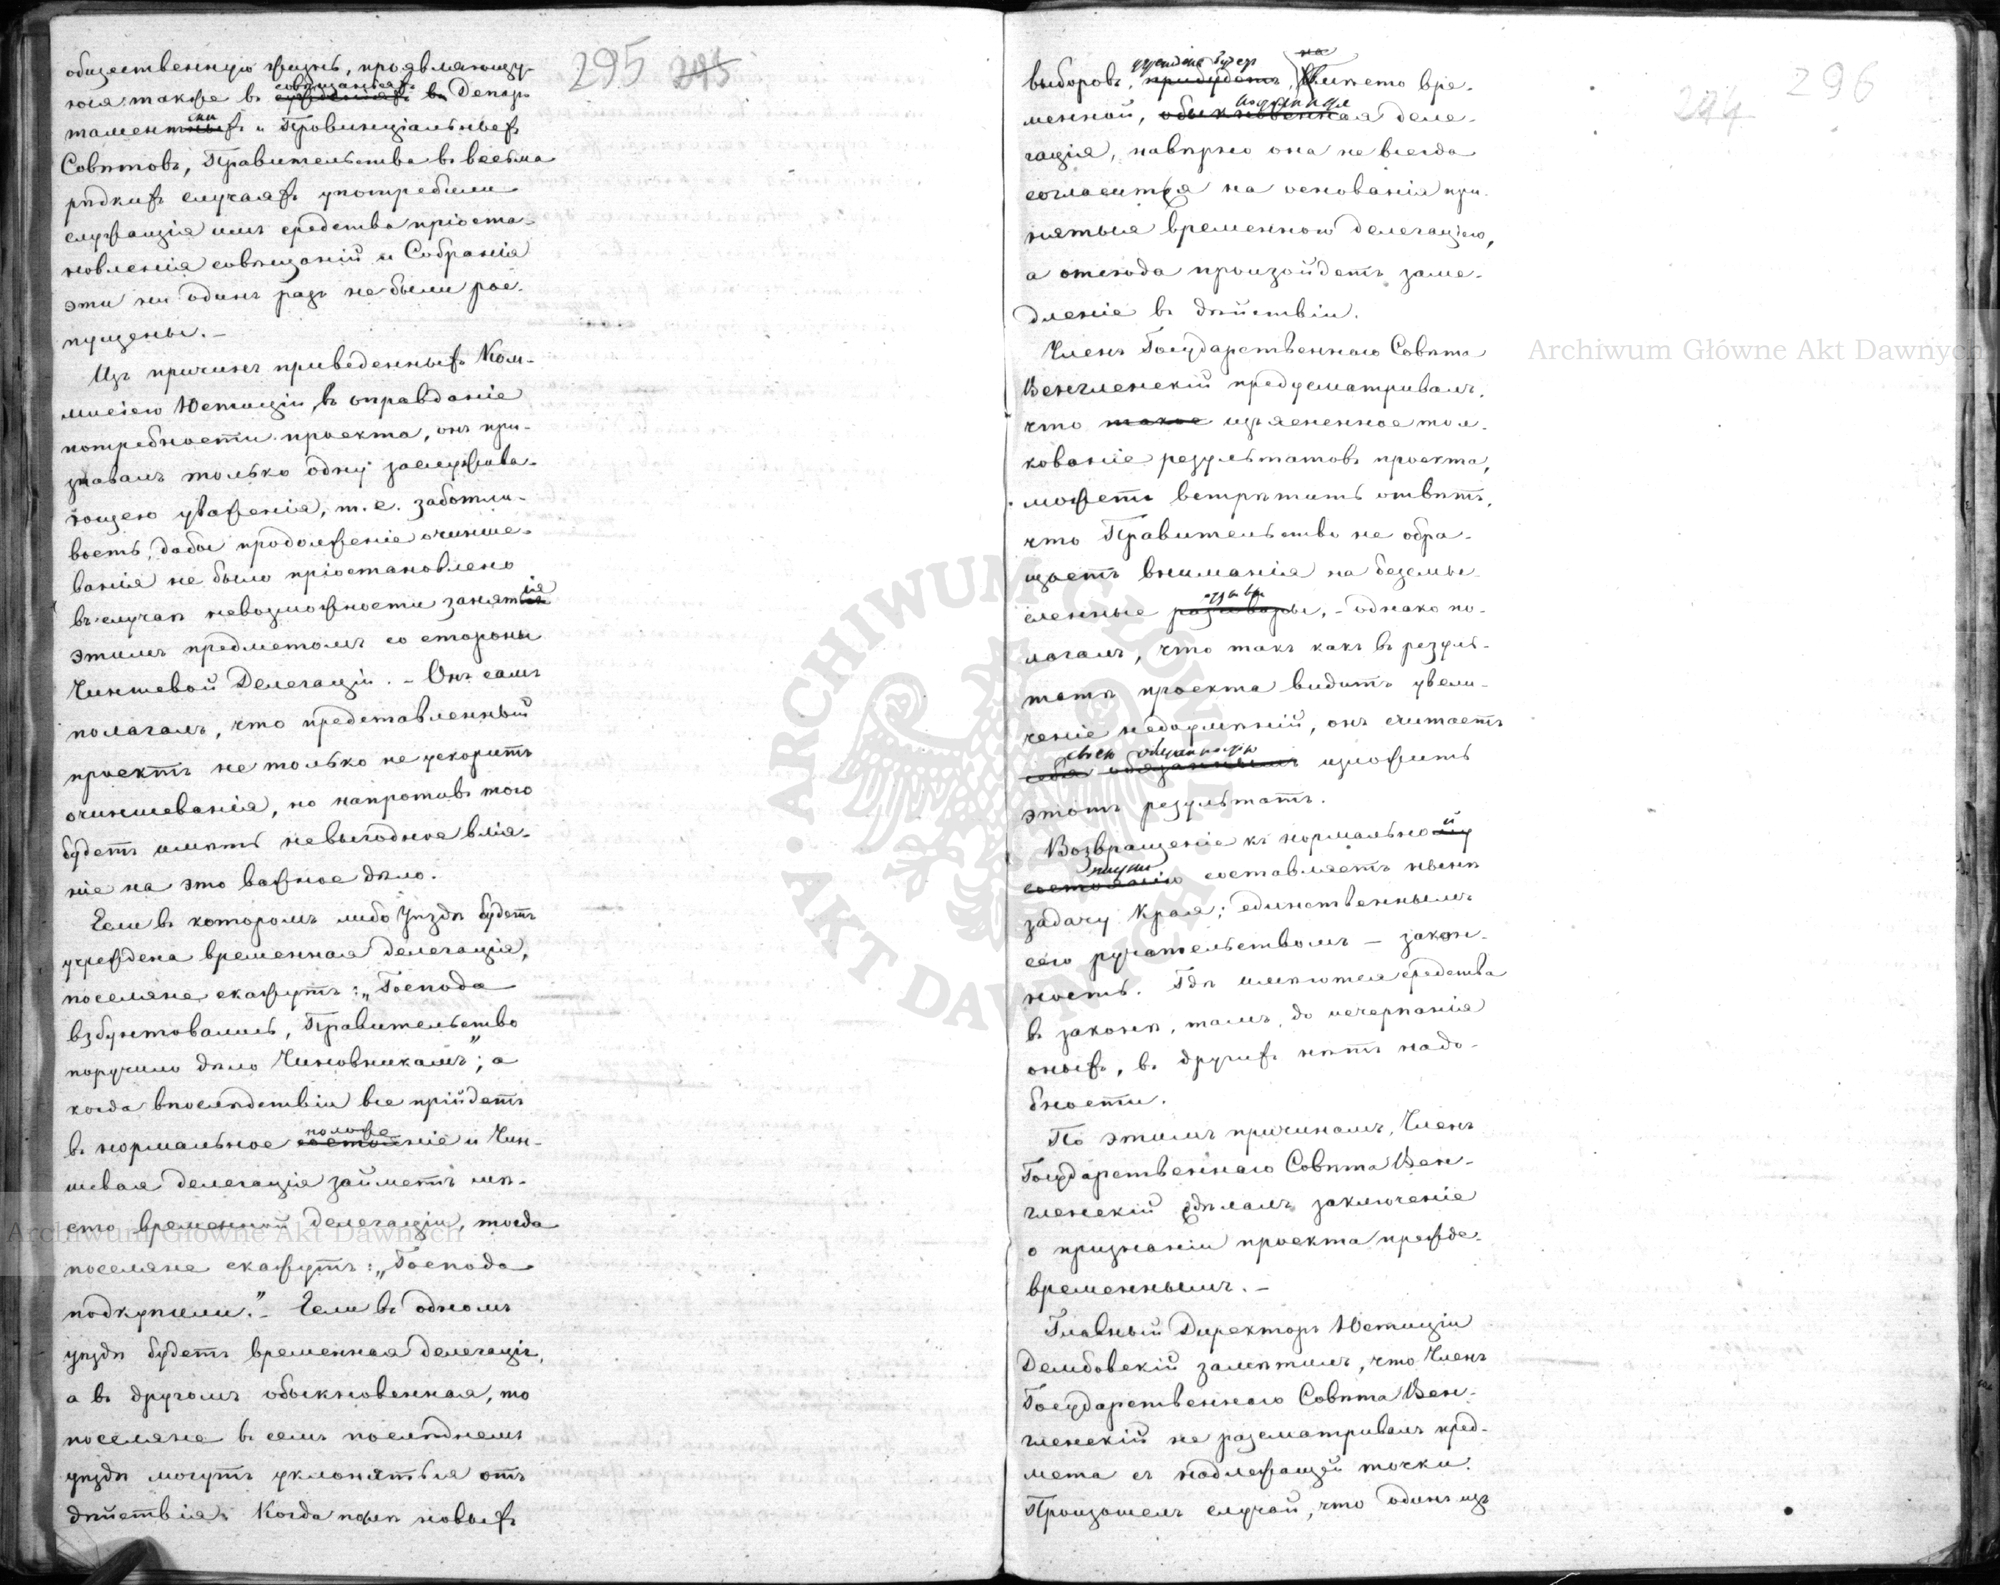 295 245
общественную жизнь, проявляющу-
юся также въ сужденіяхъ въ совѣщаніяхъ Депар-
таментныхъ скихъ и Провинціальныхъ
Совѣтовъ, Правительства въ весьма
рѣдкихъ случаяхъ употребили
служащія имъ средства пріоста-
новленія совѣщаній и Собранія
эти ни одинъ разъ не были рас-
пущены. —
Изъ причинъ приведенныхъ Ком-
мисіею Юстиціи въ оправданіе
потребности проекта, онъ при-
знавалъ только одну заслужива-
ющею уваженія, т. е. заботли-
вость, дабы продолженіе очинше-
ванія не было пріостановлено
въ случаѣ невозможности занятія
этимъ предметомъ со стороны
Чиншевой Делегаціи. — Онъ самъ
полагалъ, что представленный
проектъ не только не ускоритъ
очиншеванія, но напротивъ того
будетъ имѣть невыгодное влія-
ніе на это важное дѣло.
Если въ которомъ либо Уѣздѣ будетъ
учреждена временная делегація,
поселяне скажутъ: „Господа
взбунтовались, Правительство
поручило дѣло Чиновникамъ"; а
когда впослѣдствіи все прійдетъ
въ нормальное состояніе положе и Чин-
шевая делегація займетъ мѣ-
сто временной делегаціи, тогда
поселяне скажутъ: „Господа
подкупили." — Если въ одномъ
уѣздѣ будетъ временная делегація,
а въ другомъ обыкновенная, то
поселяне въ семъ послѣднемъ
уѣздѣ могутъ уклоняться отъ
дѣйствія. Когда послѣ новыхъ
244 296
выборовъ, прибудетъ учреждена будетъ, на вмѣсто вре-
менной, обыкновенная делегація
гація, навѣрно она не всегда
согласится на основанія при-
нятыя временною делегаціею,
а отсюда произойдетъ заме-
дленіе въ дѣйствіи.
Членъ Государственнаго Совѣта
Венгленскій предусматривалъ,
что такое изъясненное тол-
кованіе результатовъ проекта,
можетъ встрѣтить отвѣтъ,
что Правительство не обра-
щаетъ вниманія на безсмы-
сленные разговоры отзывы, — однако по-
лагалъ, что такъ какъ въ резуль-
татѣ проекта видитъ увели-
ченіе недоумѣній, онъ считаетъ
себя обязаннымъ своею обязанностью изложить
этотъ результатъ.
Возвращеніе къ нормальному й
состоянію жизни составляетъ нынѣ
задачу Края; единственнымъ
сего ручательствомъ — закон-
ность. Гдѣ имѣются средства
въ законѣ, тамъ, до исчерпанія
оныхъ, въ другихъ нѣтъ надо-
бности.
По этимъ причинамъ, Членъ
Государственнаго Совѣта Вен-
гленскій сдѣлалъ заключеніе
о признаніи проекта прежде-
временнымъ. —
Главный Директоръ Юстиціи
Дембовскій замѣтилъ, что Членъ
Государственнаго Совѣта Вен-
гленскій не разсматривалъ пред-
мета съ надлежащей точки.
Произошелъ случай, что одинъ изъ
Archiwum Główne Akt Dawnych
Archiwum Główne Akt Dawnych
ARCHIWUM GŁÓWNE AKT DAWNYCH